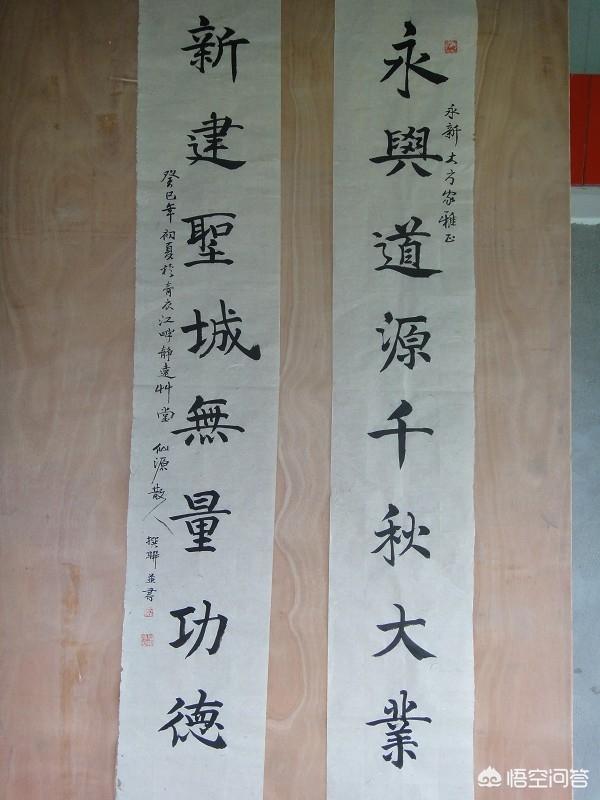 永興道源千秋大業
永新大方家雅正
新建聖城無量功德
癸巳年初夏於青衣江畔靜遠艸堂
仙源散人撰聯並書
悟空问答